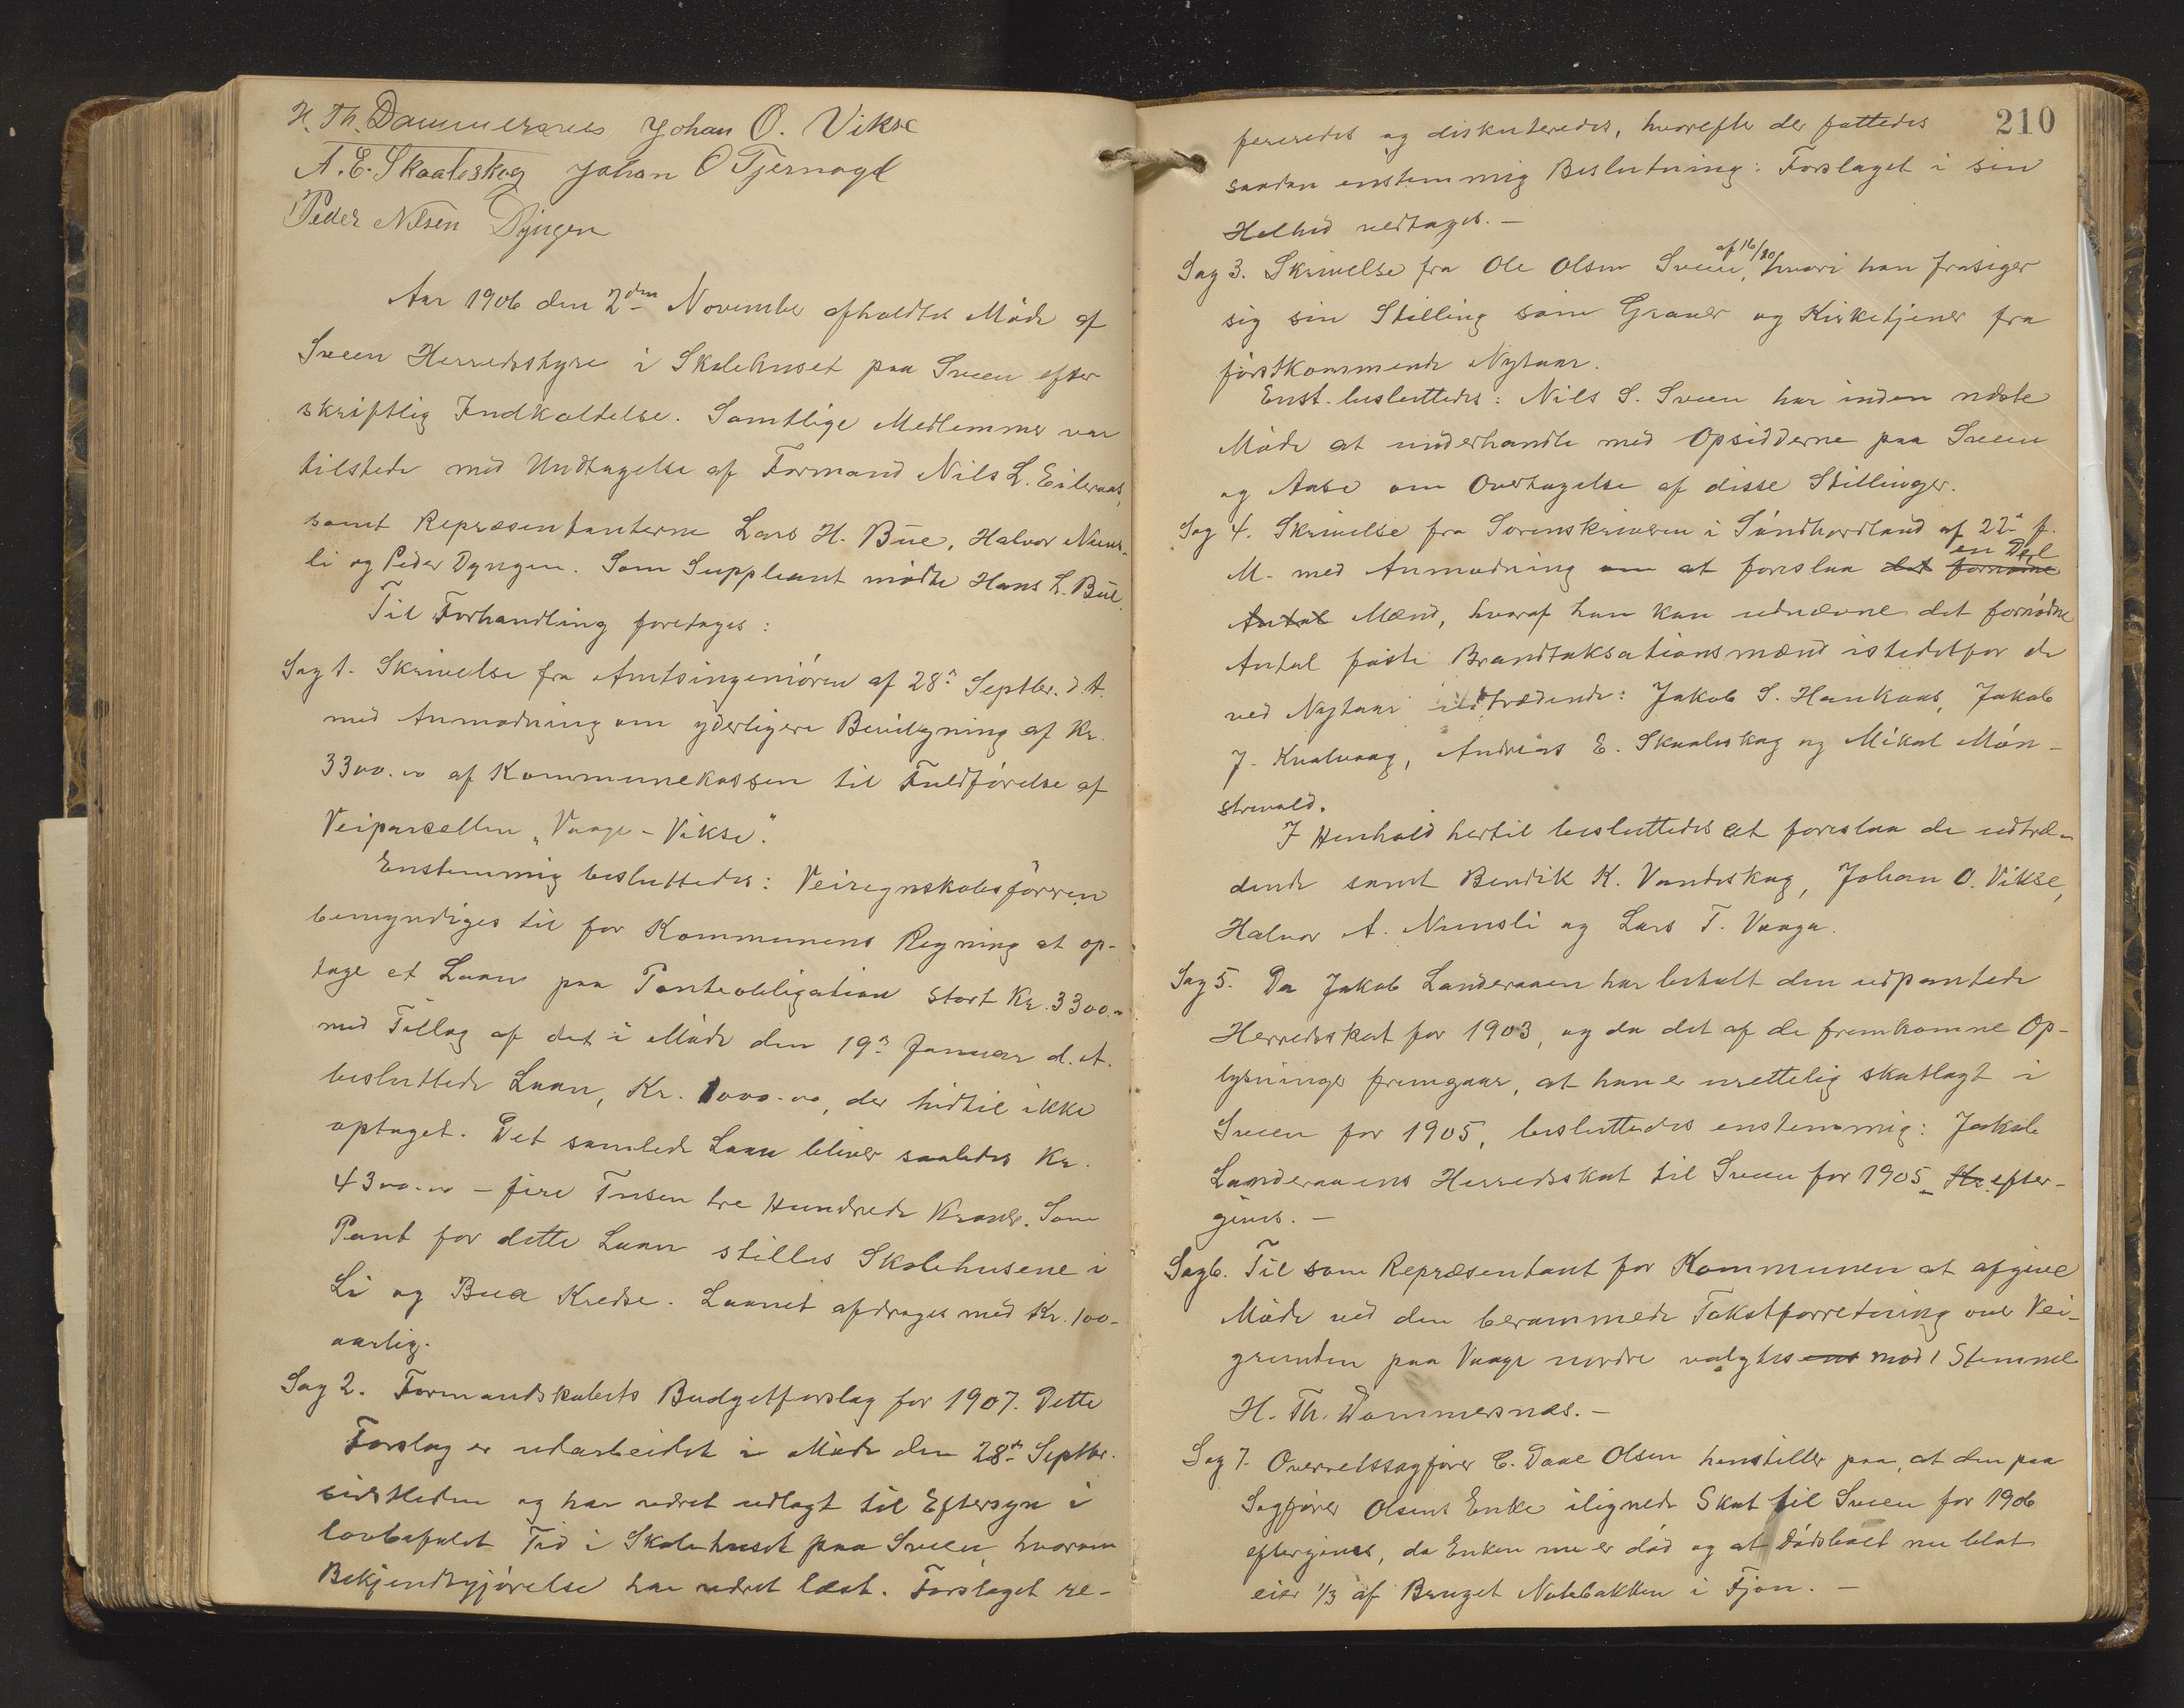 H. Th. Dommersnes Johan O. Vikse
A. E. Skaaleskog Johan O Tjernagel
Peder Nilsen Dyngen
Aar 1906 den 2den November afholdtes Möde af
Sveen Herredsstyre i Skolehuset paa Sveen efter
skriftlig Indkaldelse. Samtlige Medlemmer var
tilstede med Undtagelse af Formand Nils L. Eilerаas,
samt Repræsentanterne Lars H. Bue, Halvor Nums-
li og Peder Dyngen. Som Suppleant mödte Hans L. Bue.
Til Forhandling foretages:
Sag 1. Skrivelse fra Amtsingeniören af 28de Septbr. d. A.
med Anmodning om yderligere Bevilgning af Kr.
3300.00 af Kommunekassen til Fuldförelse af
Veiparcellen „Vaage-Vikse".
Enstemmig besluttedes: Veiregnskabsföreren
bemyndiges til for Kommunens Regning at op-
tage et Laan paa Panteobligation stort Kr. 3300.00
med Tillæg af det i Möde den 19de Januar d. A.
besluttede Laan, Kr. 1000.00, der hidtil ikke
optaget. Det samlede Laan bliver saaledes Kr.
4300.00 - fire Tusen tre Hundrede Kroner. Som
Pant for dette Laan stilles Skolehusene i
Li og Bua Kredse. Laanet afdrages med Kr. 100-
aarlig.
Sag 2. Formandskabets Budgetforslag for 1907. Dette
Forslag er udarbeidet i Möde den 28de Septbr.
sidstleden og har været udlagt til Eftersyn i
lovbefalet Tid i Skolehuset paa Sveen, hvorom
Bekjendtgjörelse har været læst. Forslaget re-
210
fereredes og diskuteredes, hvorefter der fattedes
saadan enstemmig Beslutning: Forslaget i sin
Helhed vedtages. -
Sag 3. Skrivelse fra Ole Olsen Sveen, af 16/10, hvori han frasiger
sig sin Stilling som Graver og Kirketjener fra
förstkommende Nytaar.
Enst. besluttedes: Nils S. Sveen har inden næste
Möde at underhandle med Opsidderne paa Sveen
og Aase om Overtagelse af disse Stillinger.
Sag 4. Skrivelse fra Sorenskriveren i Söndhordland af 22de f.
M. med Anmodning om at foreslaa det fornödne en Del
Antal Mænd, hvoraf han kan udnævne det fornödne
Antal faste Brandtaksationsmænd istedetfor de
ved Nytaar udtrædende: Jakob S. Haukaas, Jakob
J. Kvalvaag, Andreas E. Skaaleskog og Mikal Mön-
strevold.
I Henhold hertil besluttedes at foreslaa de udtræ-
dende samt Bendik K. Vandskog, Johan O. Vikse,
Halvor A. Numsli og Lars T. Vaage.
Sag 5. Da Jakob Landeraaen har betalt den udpantede
Herredsskat for 1903, og da det af de fremkomne Op-
lysninger fremgaar, at han er urettelig skatlagt i
Sveen for 1905, besluttedes enstemmig: Jakob
Landeraaens Herredsskat til Sveen for 1905 Kr efter-
gives. -
Sag 6. Til som Repræsentant for Kommunen at afgive
Möde ved den berammede Takstforretning over Vei-
grunden paa Vaage nordre valgtes ens mod 1 Stemme
H. Th. Dommersnes. -
Sag 7. Overretssagförer C. Daae Olsen henstiller paa, at den paa
Sagförer Olsens Enke ilignede Skat til Sveen for 1906
eftergives, da Enken nu er död og at Dödsboet nu blot
eier 1/3 af Bruget Notebakken i Fjon. -